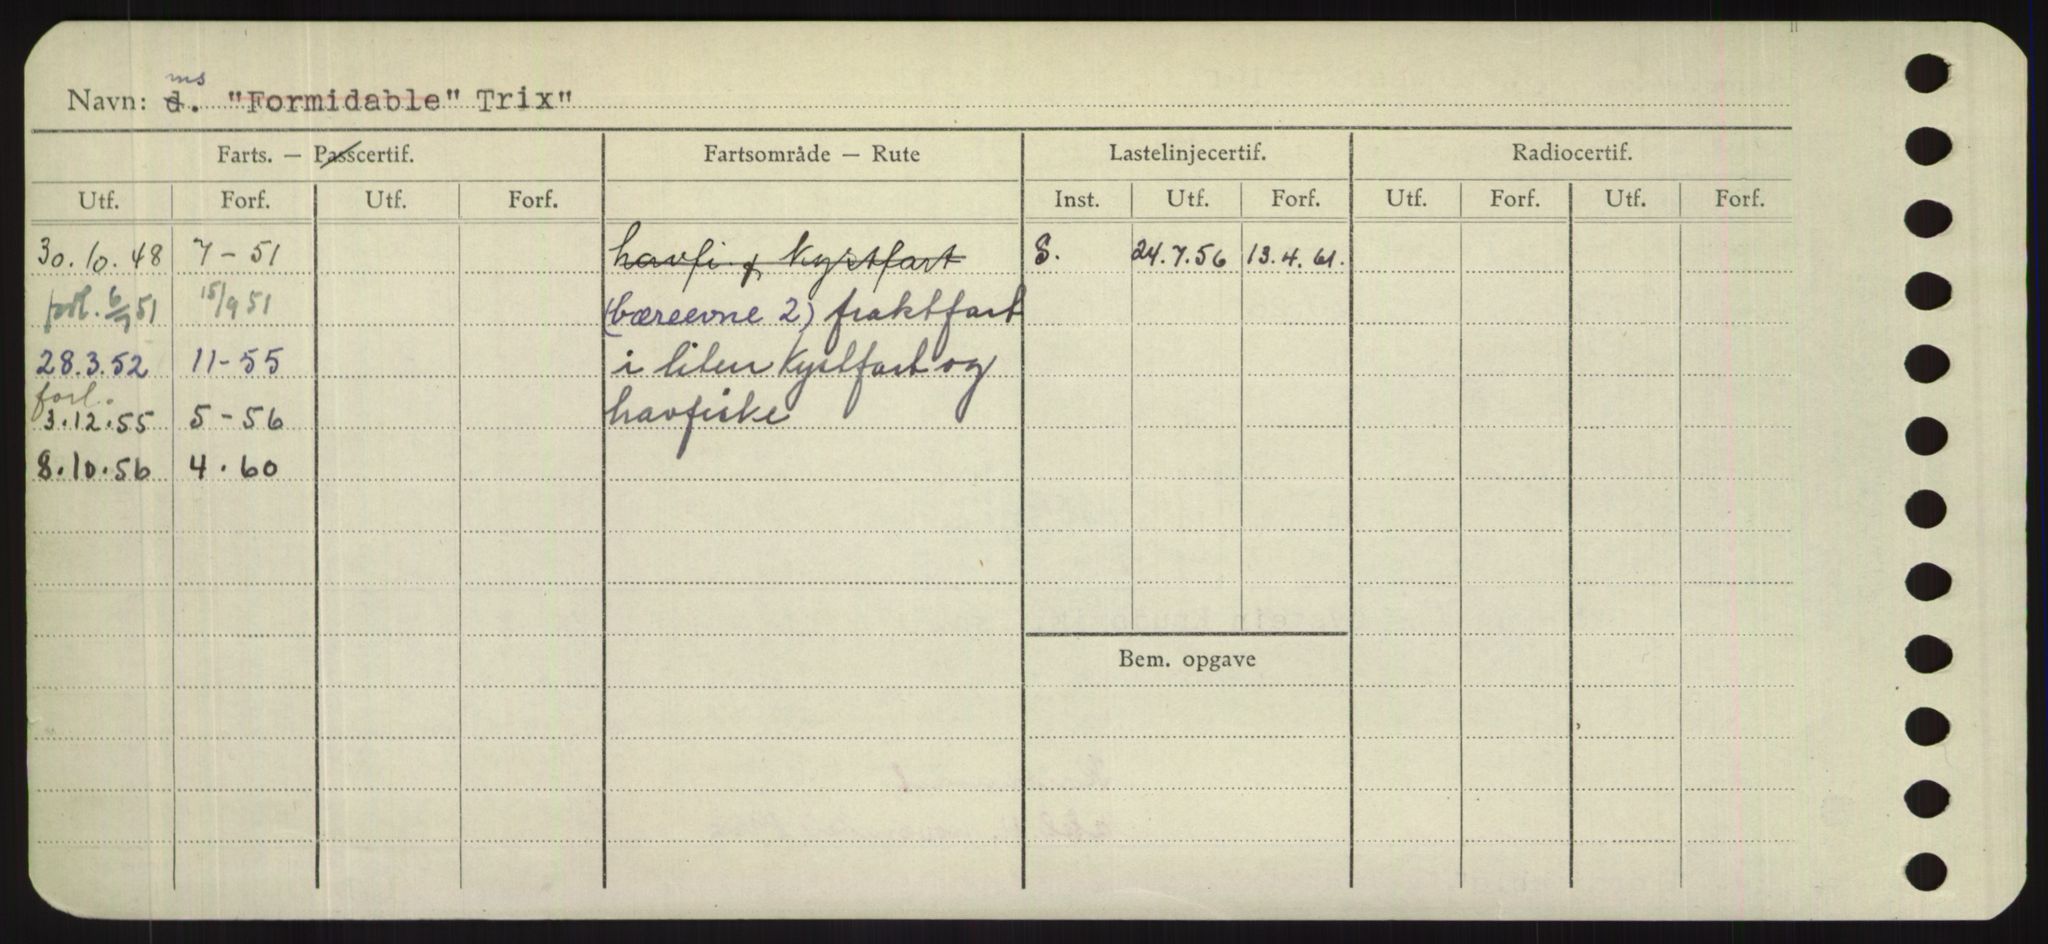 ms
Navn: d. "Formidable" Trix"
Farts. — Passcertif. Fartsområde — Rute Lastelinjecertif. Radiocertif.
Utf. Forf. Utf. Forf. Inst. Utf. Forf. Utf. Forf. Utf. Forf.
30.10.48 7-51 havfi. & kystfart S. 24.7.56 13.4.61.
forl. 6/7 51 15/9 51 (bæreevne 2) fraktfart
28.3.52 11-55 i liten kystfart og
forl.
3.12.55 5-56 havfiske
8.10.56 4.60
Bem. opgave